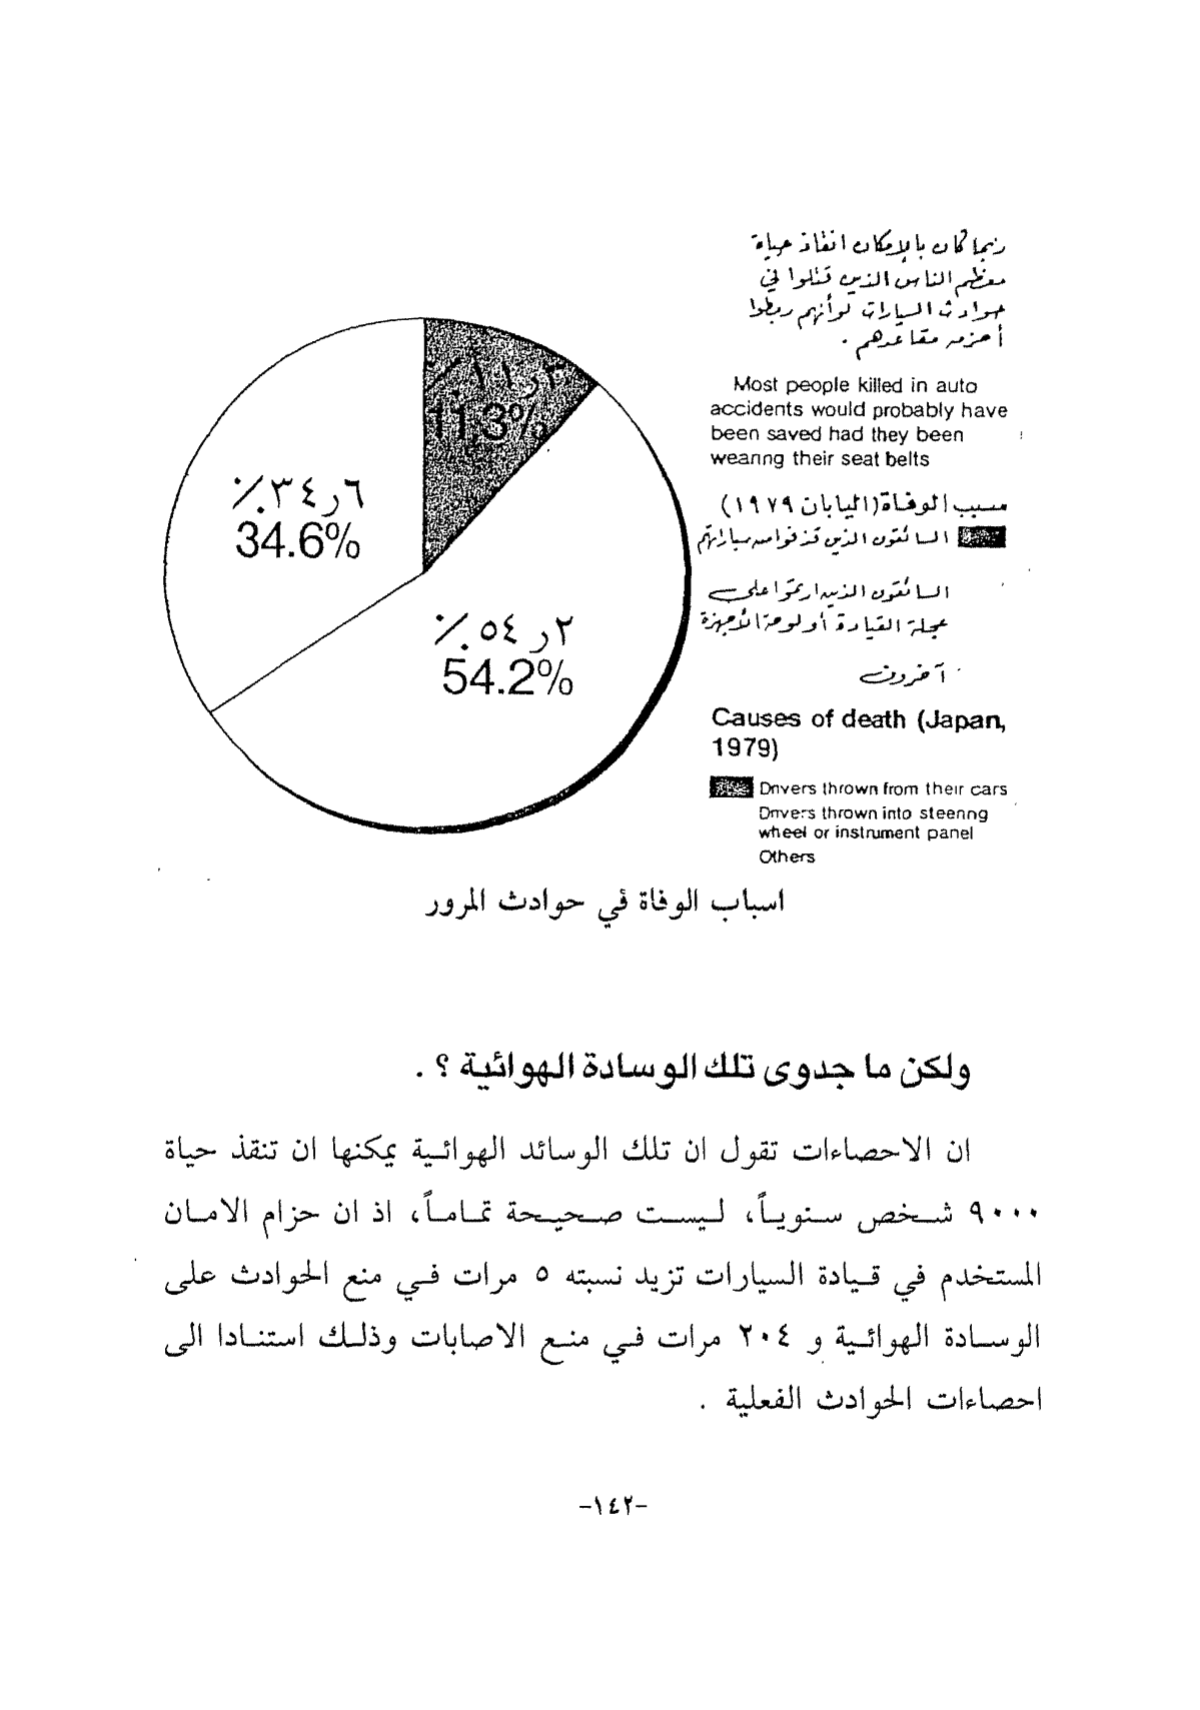 ربما كان بالإمكان انقاذ حياة
معظم الناس الذين قتلوا في
حوادث السيارات لو أنهم ربطوا
أحزمة مقاعدهم .
Most people killed in auto
accidents would probably have
been saved had they been
wearing their seat belts
سبب الوفاة (اليابان ١٩٧٩)
السائقون الذين قذفوا من سياراتهم
السائقون الذين ارتموا على
عجلة القيادة أو لوحة الأجهزة
آخرون
Causes of death (Japan,
1979)
Drivers thrown from their cars
Drivers thrown into steering
wheel or instrument panel
Others
٣ر١١٪
11.3%
٦ر٣٤٪
34.6%
٢ر٥٤٪
54.2%
اسباب الوفاة في حوادث المرور
ولكن ما جدوى تلك الوسادة الهوائية ؟ .
ان الاحصاءات تقول ان تلك الوسائد الهوائية يمكنها ان تنقذ حياة
٩٠٠٠ شخص سنوياً، ليست صحيحة تماماً، اذ ان حزام الامان
المستخدم في قيادة السيارات تزيد نسبته ٥ مرات في منع الحوادث على
الوسادة الهوائية و ٢٠٤ مرات في منع الاصابات وذلك استنادا الى
احصاءات الحوادث الفعلية .
-١٤٢-